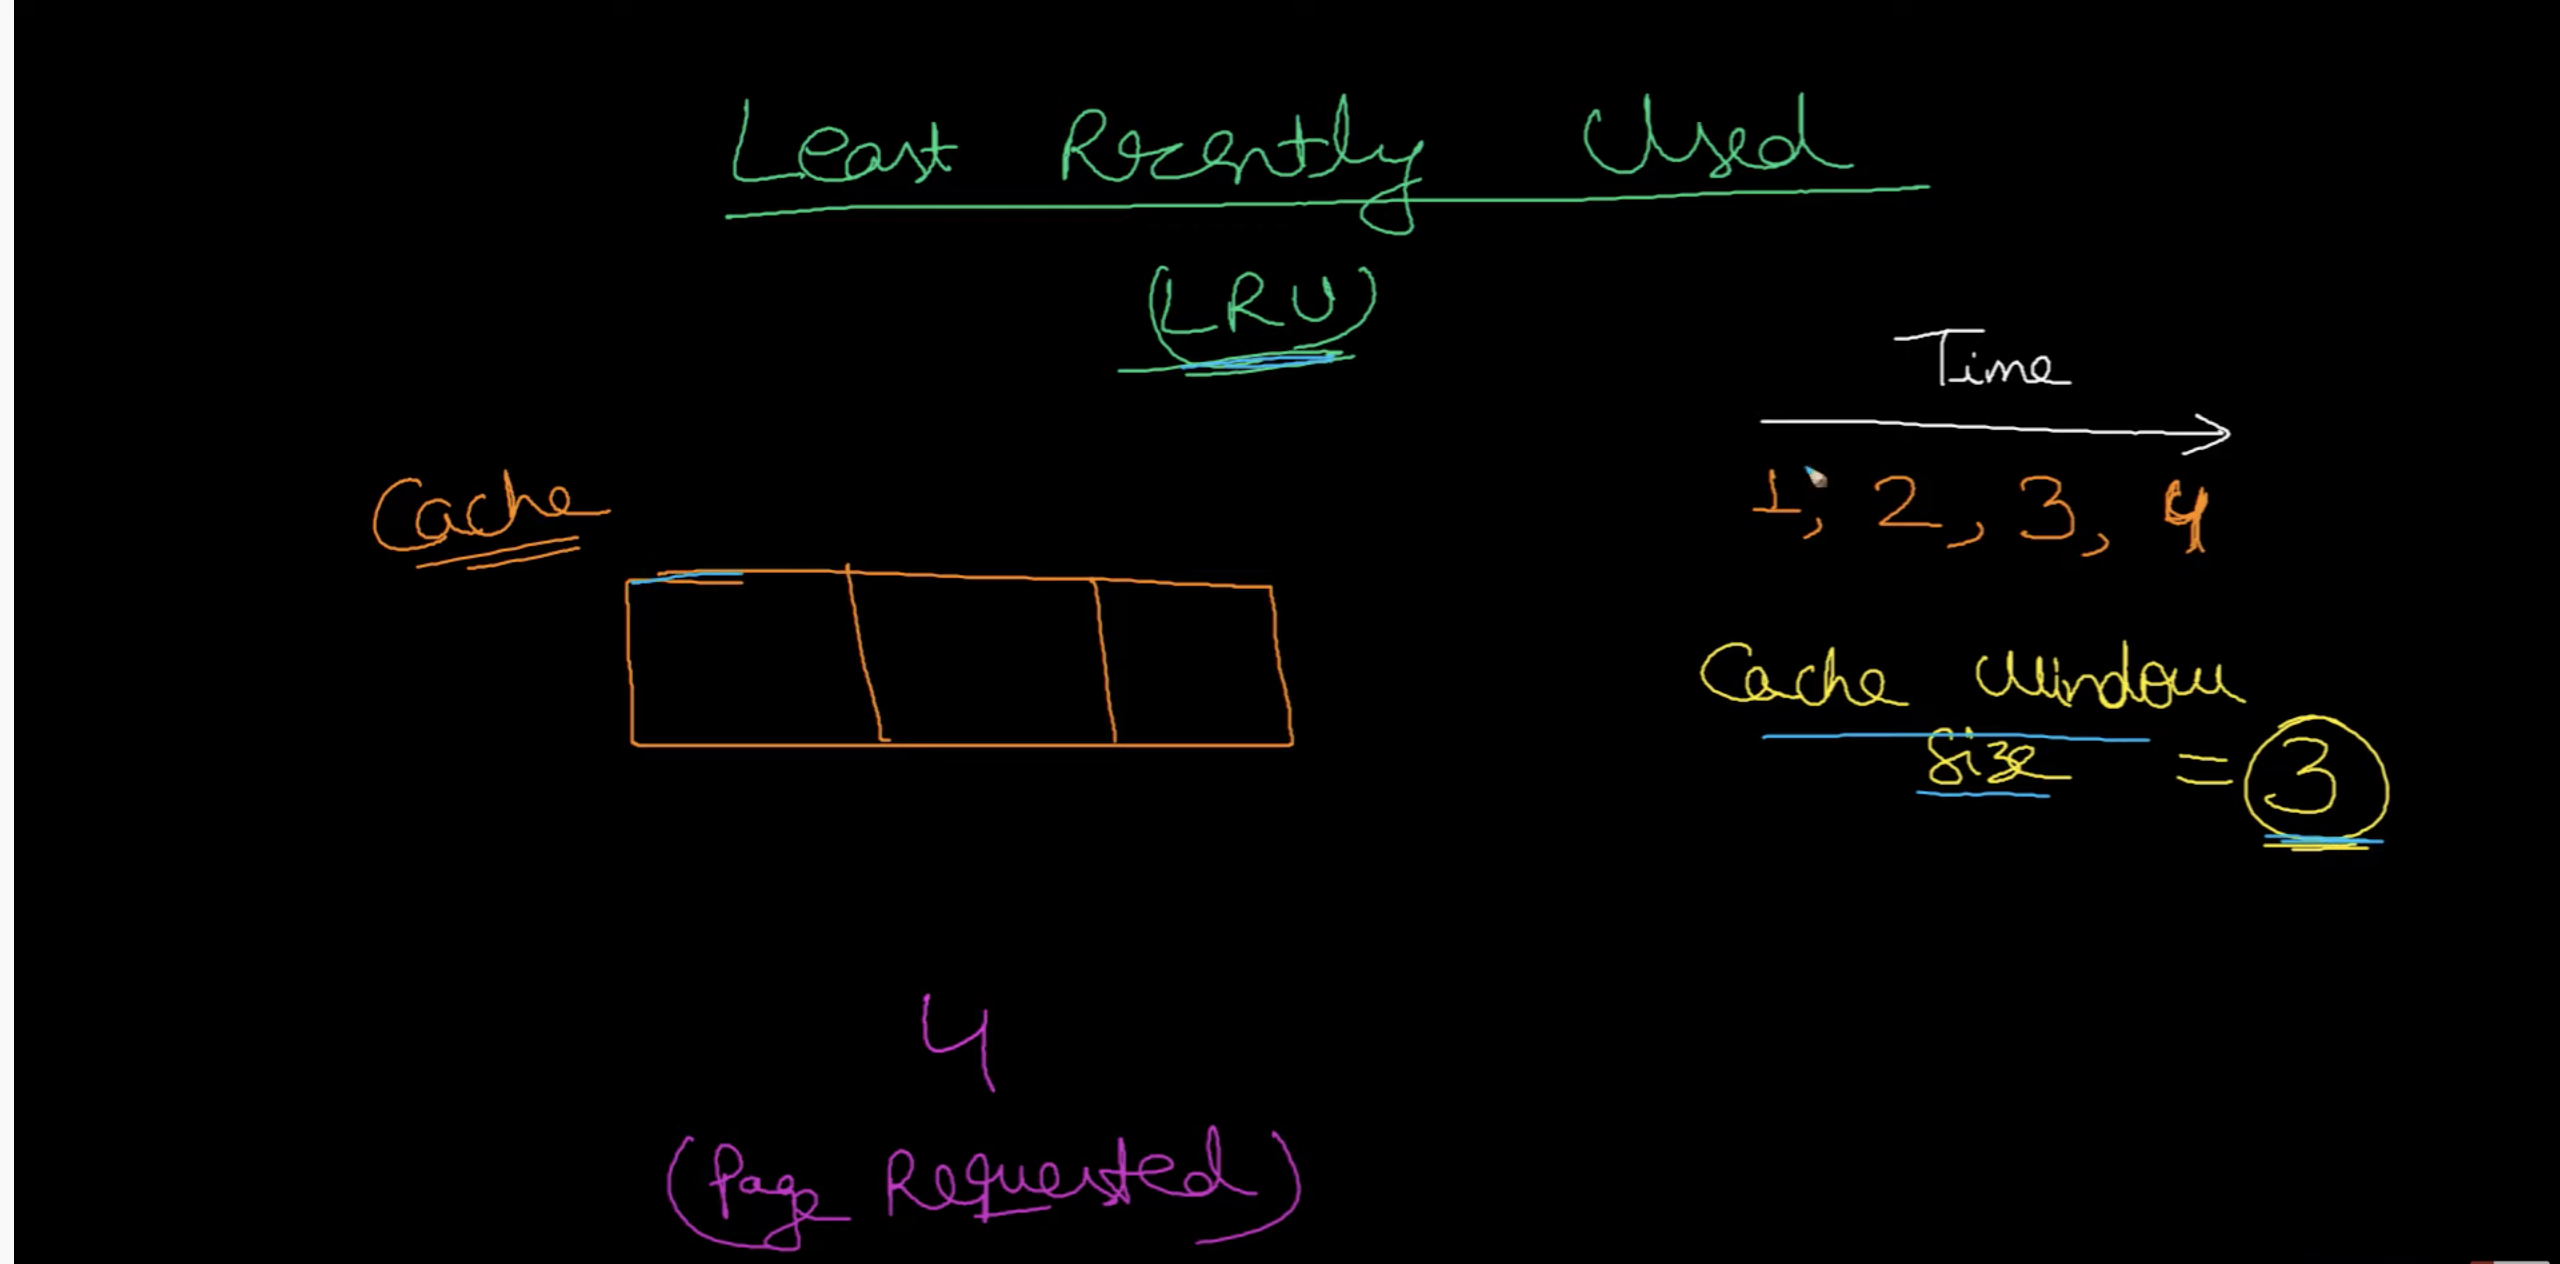 Least Recently Used
(LRU)
Time
1, 2, 3, 4
Cache
Cache Window
Size = 3
4
(Page Requested)